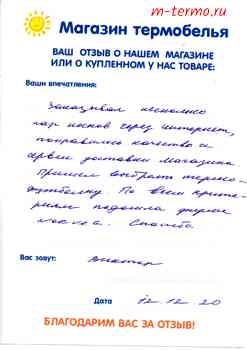 m-termo.ru
Магазин термобелья
ВАШ ОТЗЫВ О НАШЕМ МАГАЗИНЕ
ИЛИ О КУПЛЕННОМ У НАС ТОВАРЕ:
Ваши впечатления:
Заказывал несколько
пар носков через интернет,
понравились качество и
сервис доставки магазина
Пришел выбрать термо-
футболку По всем крите-
риям подошла фирма
Спасибо
Вас зовут: Виктор
Дата 12.12.20
БЛАГОДАРИМ ВАС ЗА ОТЗЫВ!